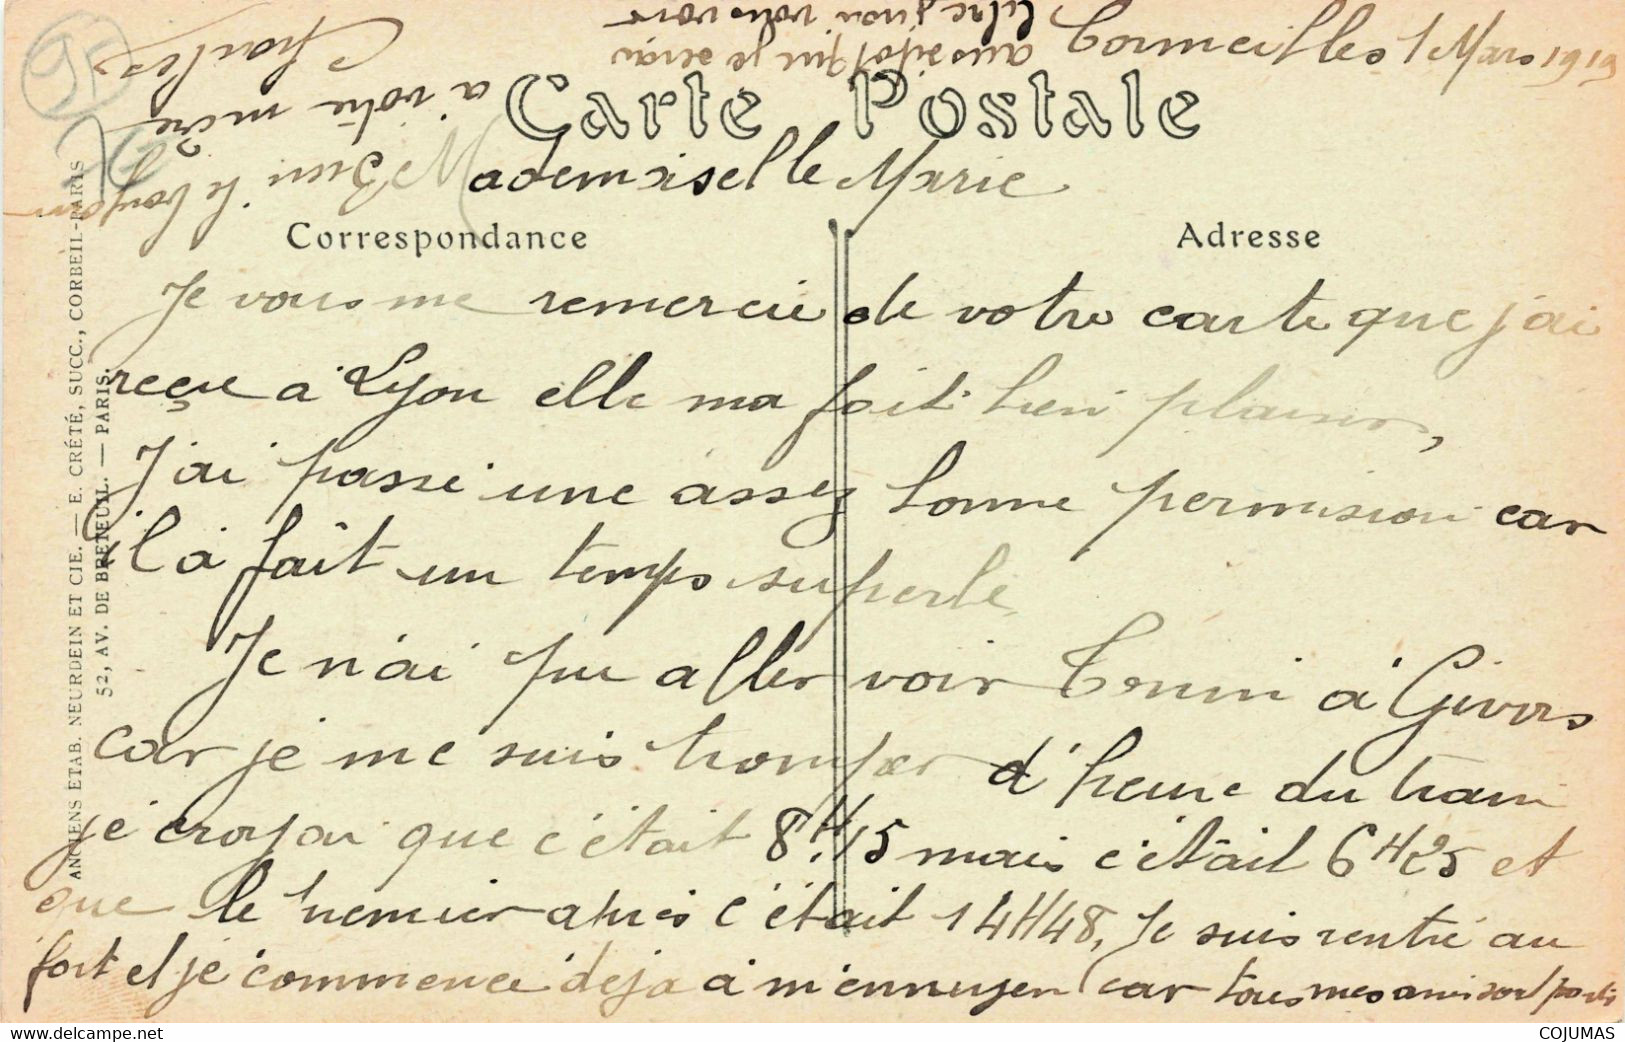 Cormeilles 1 Mars 1919
Carte Postale
Mademoiselle Marie
Correspondance
Adresse
Je vous me remercie de votre carte que j'ai
reçue à Lyon elle ma fait bien plaisir,
J'ai passé une assez bonne permision car
il à faît un temps superbe
Je n'ai pu aller voir Tonin à Givors
car je me suis tromper d'heure du train
je croyai que c'était 8H,15 mais c'était 6H25 et
que le premier après c'était 14H48, Je suis rentré au
fort et je commence déja à m'ennuyer car tous mes ami sont partis
aussitot que je serai
libre j'irai vous voir
Bien le bonjour
a votre mère
Charles
ANCIENS ETAB. NEURDEIN ET CIE. — E. CRÉTÉ, SUCC., CORBEIL-PARIS
52, AV. DE BRETEUIL. — PARIS.
COJUMAS